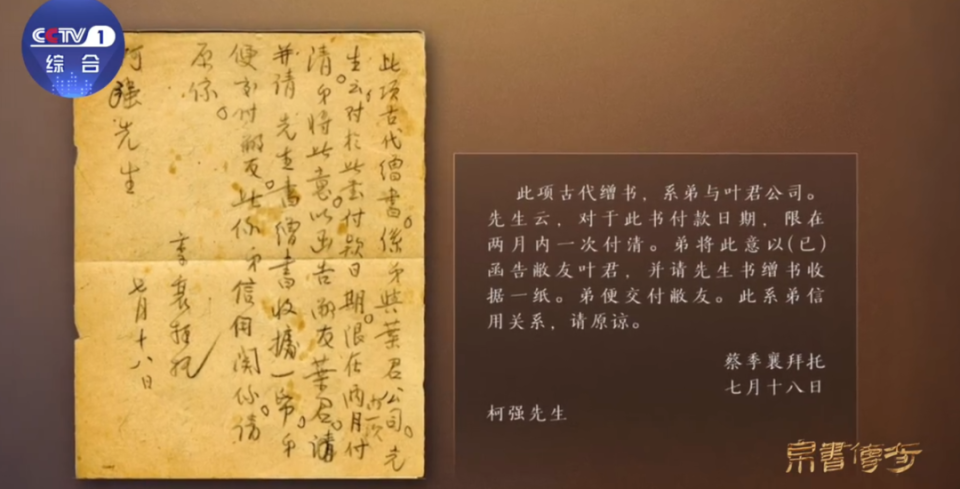 CCTV 1
综合
此项古代缯書。係弟與葉君公司。先
生云对於此書付款日期。限在两月内一次付
清。弟将此意以函告敝友葉君。請
并请 先生書缯書收據一帋。弟
便交付敝友。此係弟信用関係。請
原諒。
季襄拜托
七月十八日
柯强先生
此项古代缯书，系弟与叶君公司。
先生云，对于此书付款日期，限在
两月内一次付清。弟将此意以(已)
函告敝友叶君，并请先生书缯书收
据一纸。弟便交付敝友。此系弟信
用关系，请原谅。
蔡季襄拜托
七月十八日
柯强先生
帛書傳奇